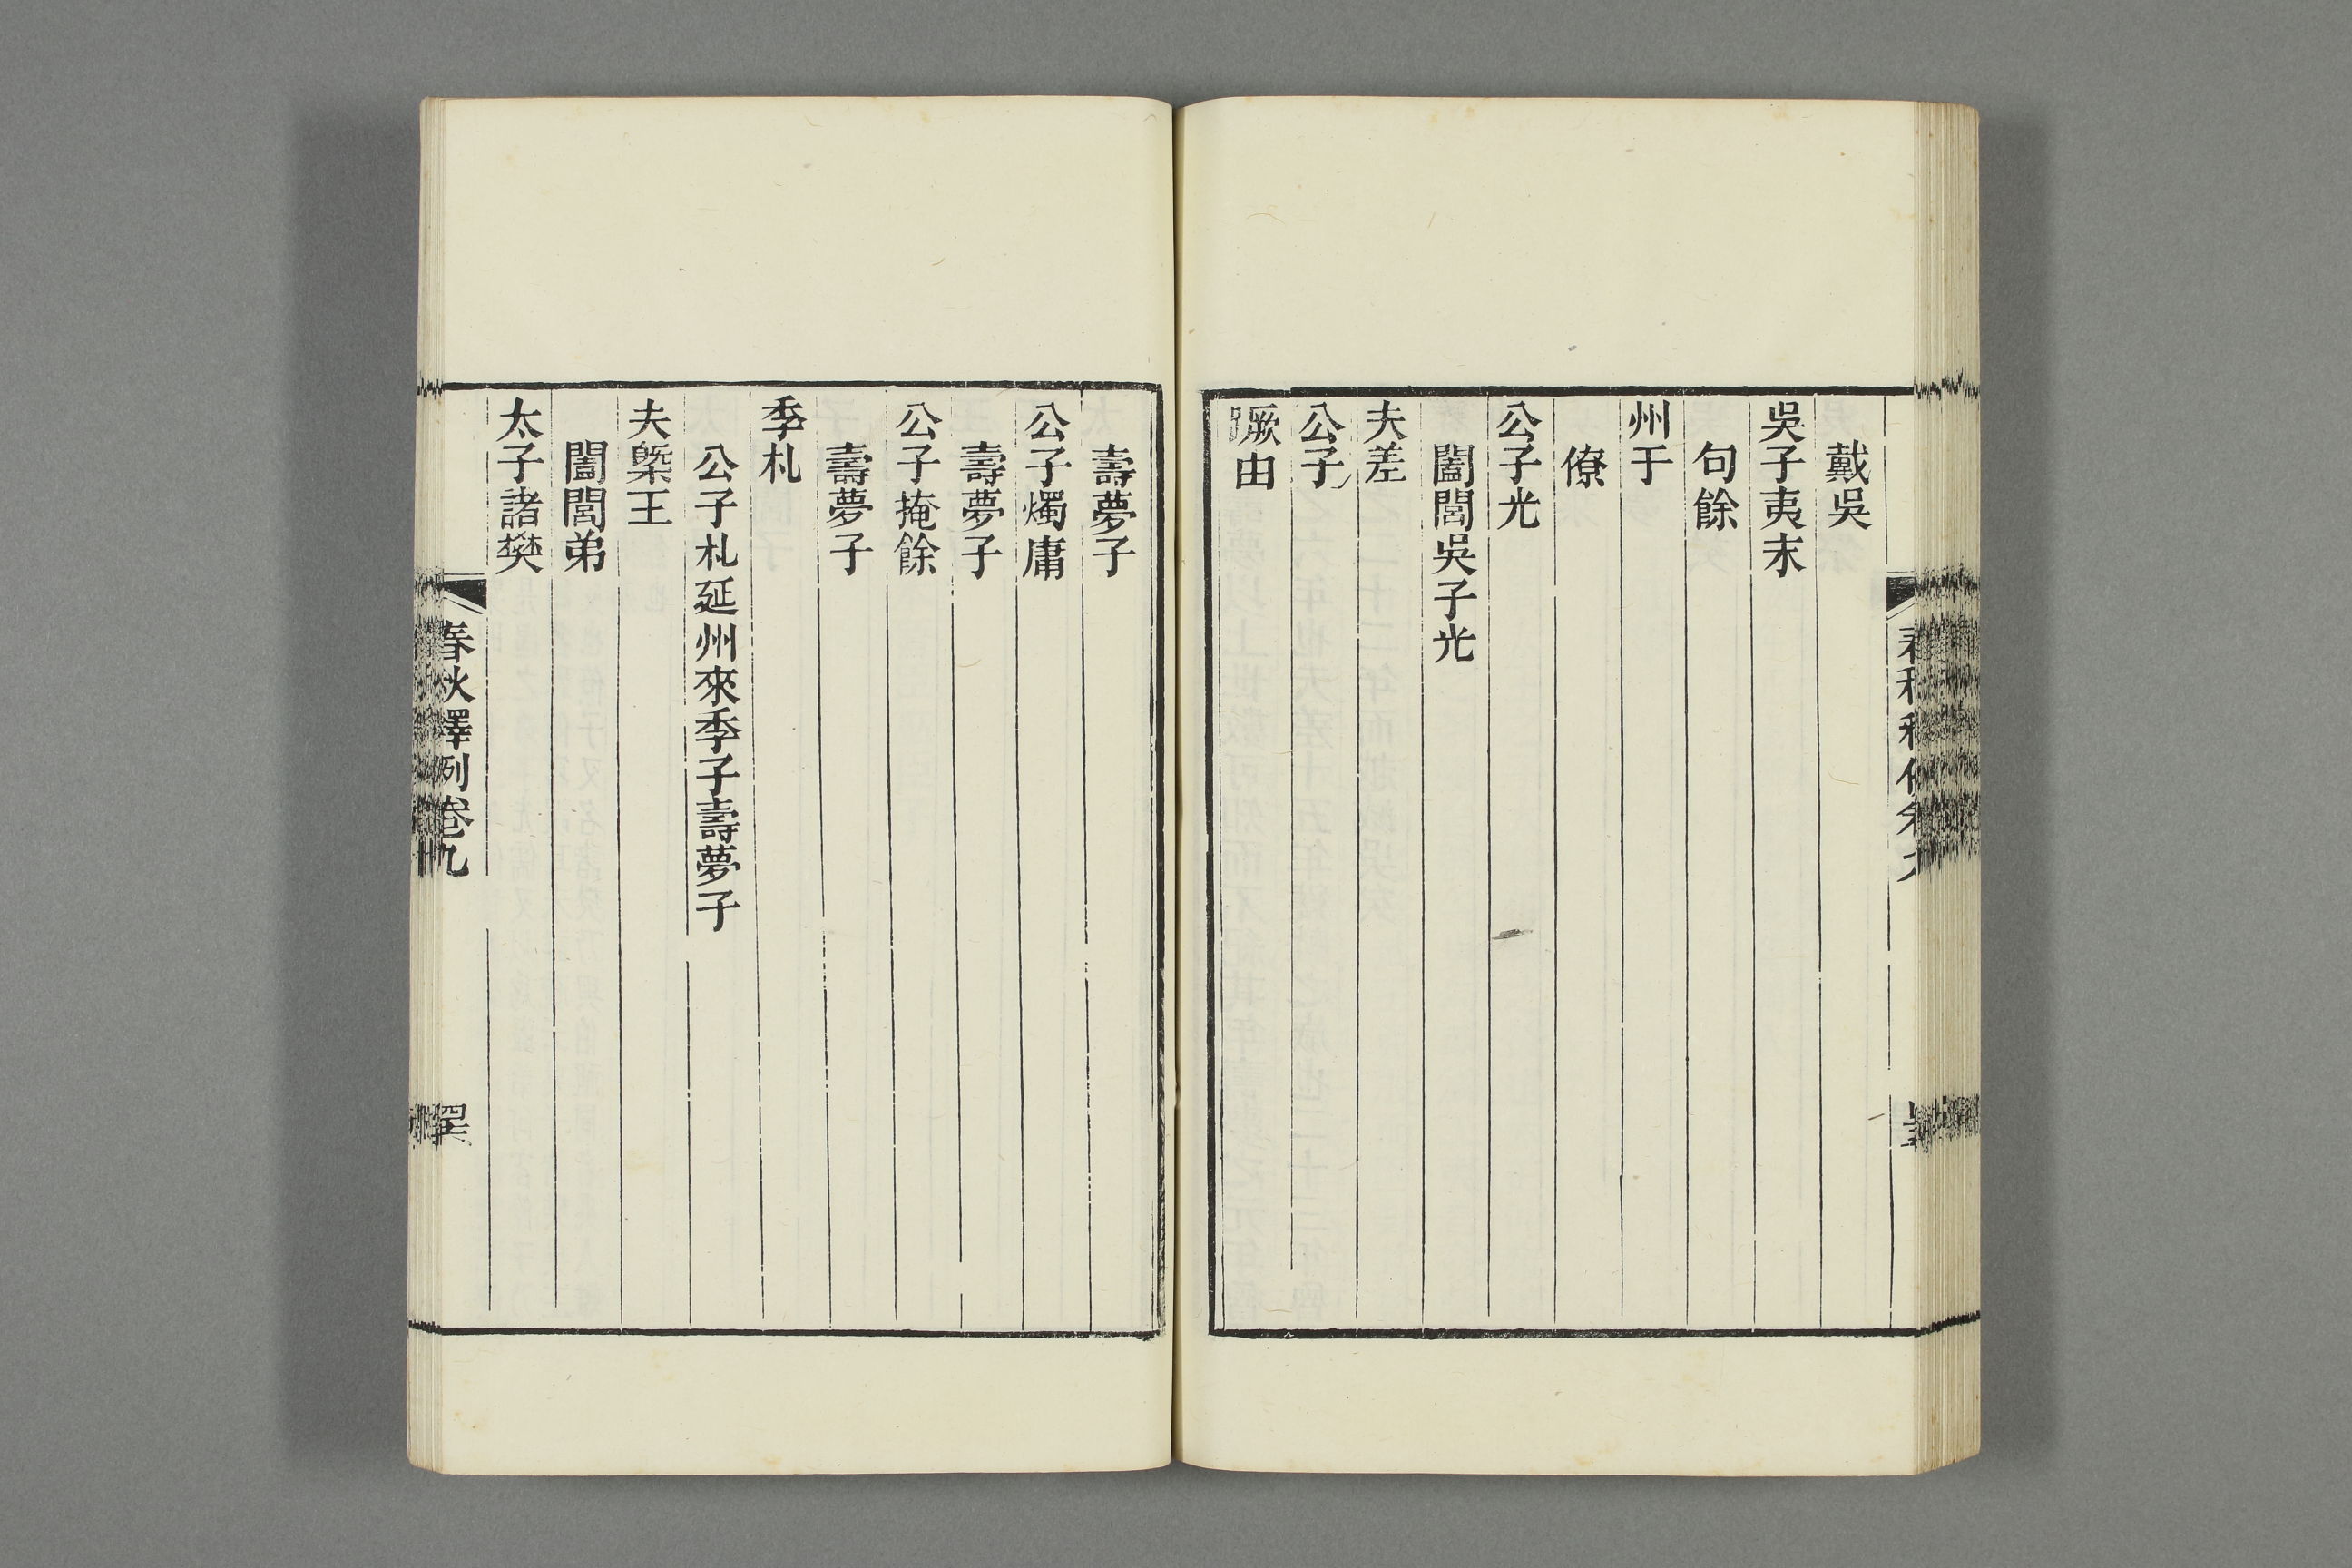 戴吳
吳子夷末
句餘
州于
僚
公子光
闔閭吳子光
夫差
公子
蹶由
壽夢子
公子燭庸
壽夢子
公子掩餘
壽夢子
季札
公子札延州來季子壽夢子
夫㮣王
闔閭弟
太子諸樊
春秋釋例卷九